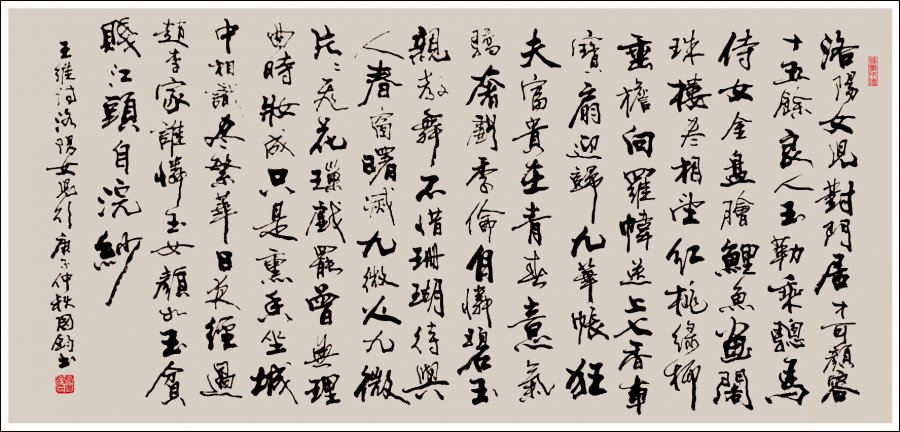 洛陽女兒對門居才可顏容
十五餘良人玉勒乘驄馬
侍女金盤膾鯉魚畫閣
珠樓盡相望紅桃綠柳
垂檐向羅幃送上七香車
寶扇迎歸九華帳狂
夫富貴在青春意氣
驕奢劇季倫自憐碧玉
親教舞不惜珊瑚待與
人春窗曙滅九微火九微
片〻飛花璅戲罷曾無理
曲時妝成只是熏香坐城
中相識盡繁華日夜經過
趙李家誰憐玉女顏如玉貧
賤江頭自浣紗
王維詩洛陽女兒行庚子仲秋國鈞書